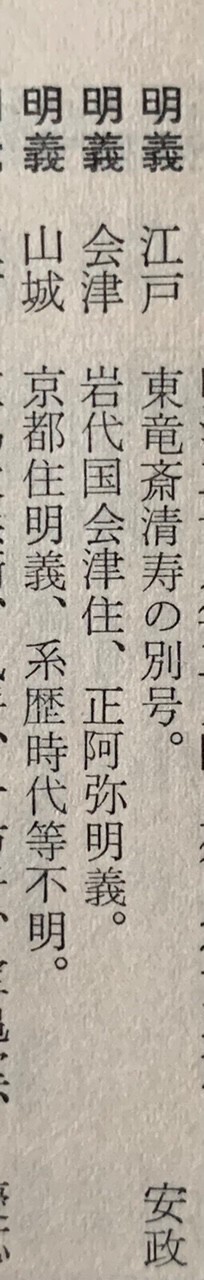 明義 江戸 東竜斎清寿の別号。 安政
明義 会津 岩代国会津住、正阿弥明義。
明義 山城 京都住明義、系歴時代等不明。